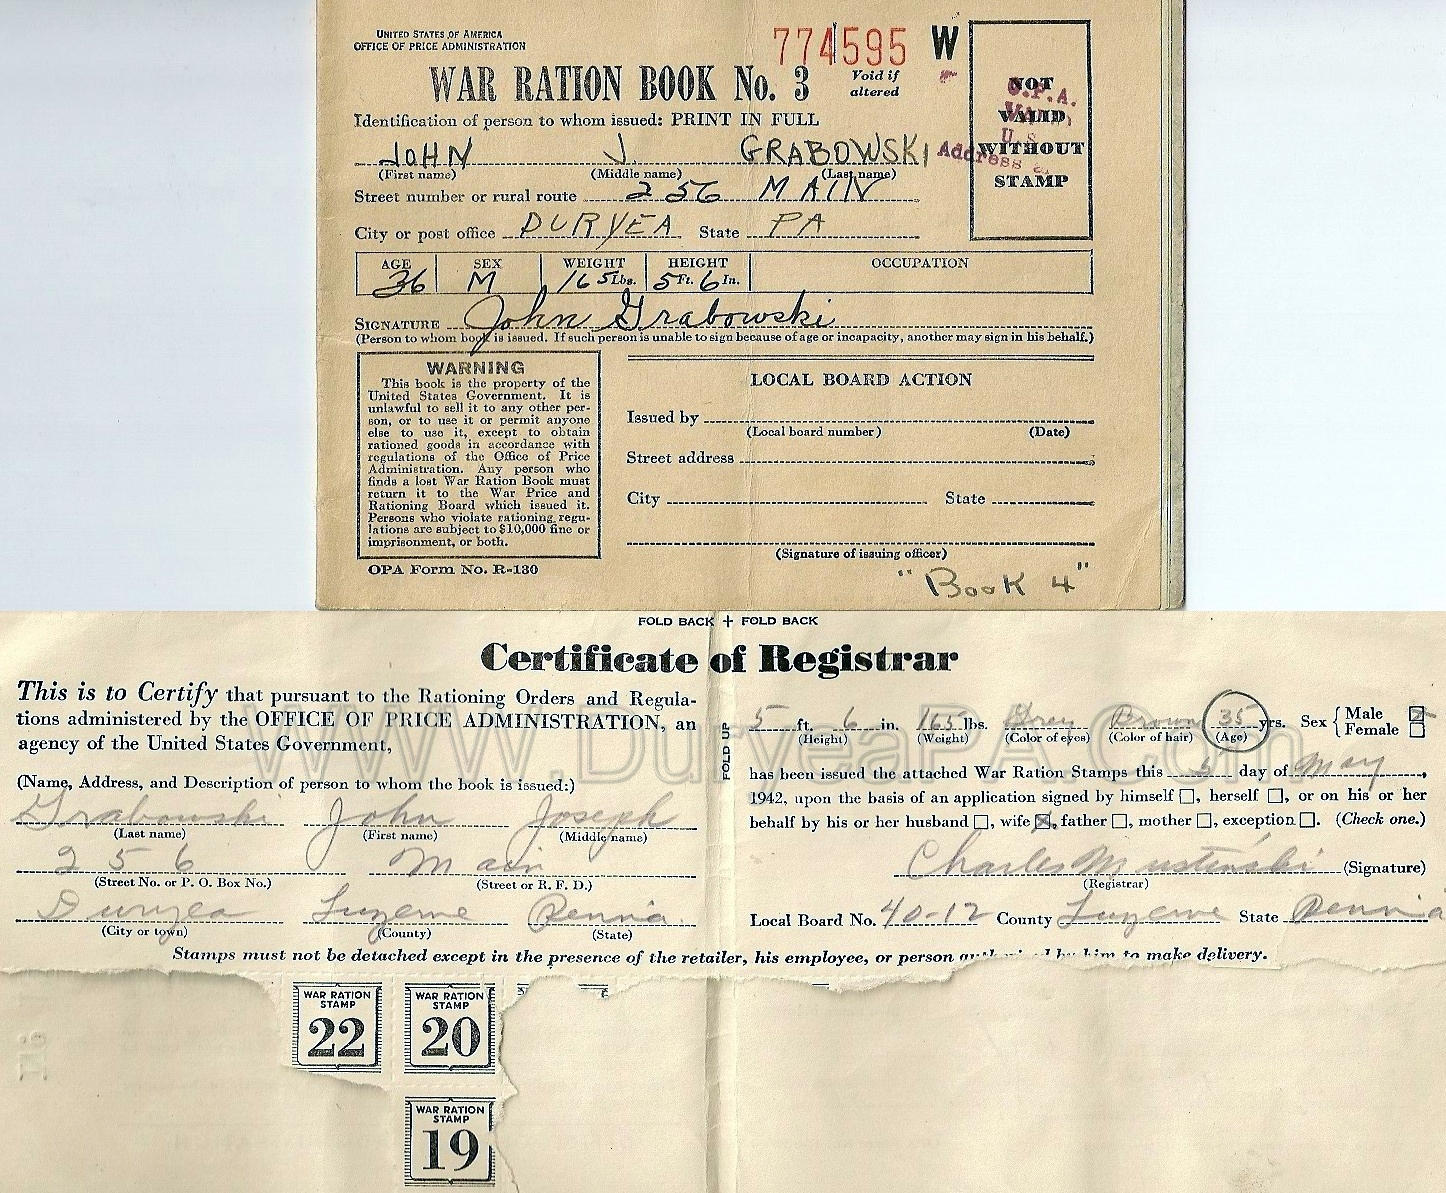 UNITED STATES OF AMERICA
OFFICE OF PRICE ADMINISTRATION
774595 W
WAR RATION BOOK No. 3 Void if altered
Identification of person to whom issued: PRINT IN FULL
JOHN J. GRABOWSKI
(First name) (Middle name) (Last name)
Street number or rural route 256 MAIN
City or post office DURYEA State PA
NOT
VALID
WITHOUT
STAMP
O.P.A.
VALID
U.S.
Address
AGE SEX WEIGHT HEIGHT OCCUPATION
36 M 165 Lbs. 5 Ft. 6 In.
SIGNATURE John Grabowski
(Person to whom book is issued. If such person is unable to sign because of age or incapacity, another may sign in his behalf.)
WARNING
This book is the property of the
United States Government. It is
unlawful to sell it to any other per-
son, or to use it or permit anyone
else to use it, except to obtain
rationed goods in accordance with
regulations of the Office of Price
Administration. Any person who
finds a lost War Ration Book must
return it to the War Price and
Rationing Board which issued it.
Persons who violate rationing regu-
lations are subject to $10,000 fine or
imprisonment, or both.
OPA Form No. R-130
LOCAL BOARD ACTION
Issued by
(Local board number) (Date)
Street address
City State
(Signature of issuing officer)
"Book 4"
FOLD BACK + FOLD BACK
Certificate of Registrar
This is to Certify that pursuant to the Rationing Orders and Regula-
tions administered by the OFFICE OF PRICE ADMINISTRATION, an
agency of the United States Government,
(Name, Address, and Description of person to whom the book is issued:)
Grabowski John Joseph
(Last name) (First name) (Middle name)
256 Main
(Street No. or P. O. Box No.) (Street or R. F. D.)
Duryea Luzerne Penna.
(City or town) (County) (State)
FOLD UP
5 ft. 6 in. 165 lbs. Grey Brown 35 yrs. Sex { Male
Female
(Height) (Weight) (Color of eyes) (Color of hair) (Age)
has been issued the attached War Ration Stamps this day of May,
1942, upon the basis of an application signed by himself □, herself □, or on his or her
behalf by his or her husband □, wife ☒, father □, mother □, exception □. (Check one.)
Charles (Signature)
(Registrar)
Local Board No. 40-12 County Luzerne State Penna
Stamps must not be detached except in the presence of the retailer, his employee, or person authorized by him to make delivery.
WWW.DuryeaPA.Com
WAR RATION STAMP 22
WAR RATION STAMP 20
WAR RATION STAMP 19